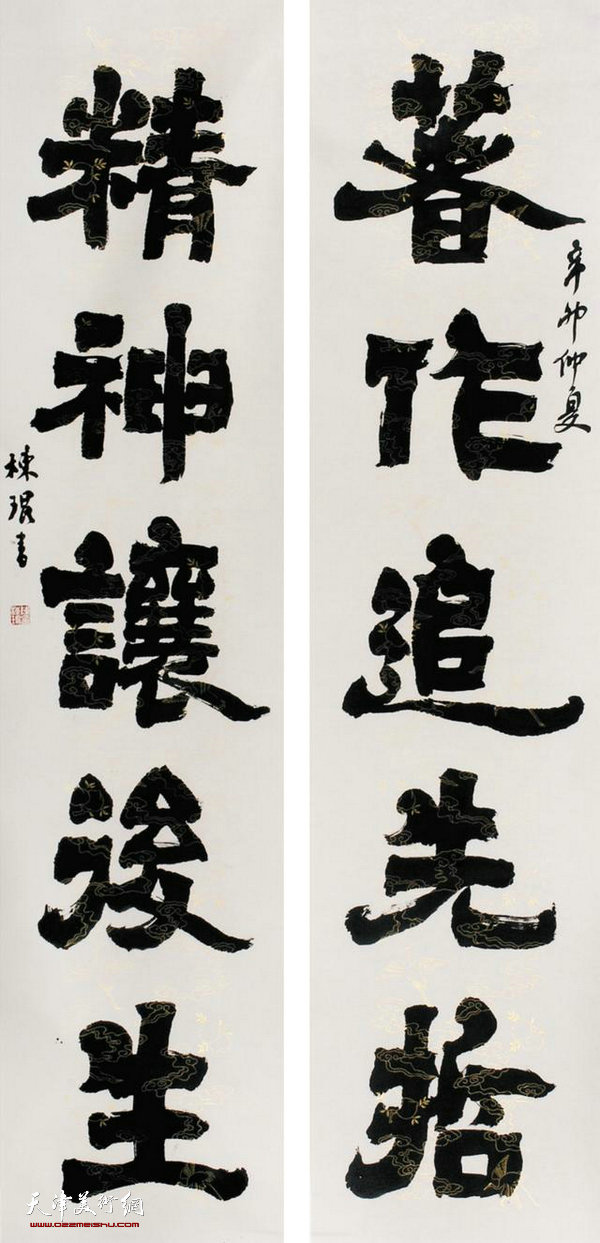 著作追先哲
辛卯仲夏
精神讓後生
棟琨書
天津美術網
www.022meishu.com